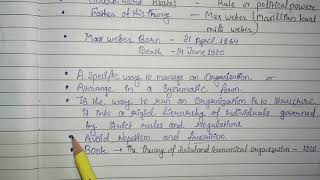 Kratos - Rule or political power
Father of this theory - Max weber (Maxillian karl
mile weber)
Max Weber Born - 21 April 1864
Death - 14 June 1920
A specific way to manage an Organisation or
Arrange in a Systematic form.
Is the way to run an Organization is to structure
it into a rigid hierarchy of individuals governed
by strict rules and regulations
Avoid Nepotism and favoritism.
Book → The theory of Social and Economical organization - 1920